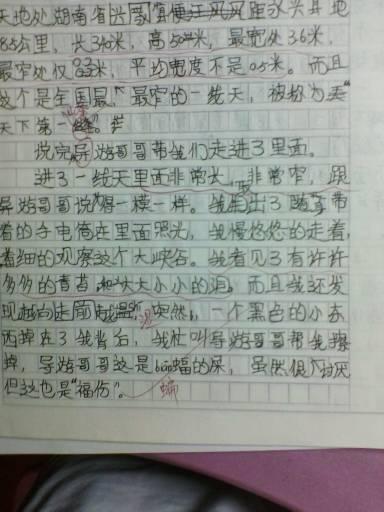 天地处湖南省
85公里，长340米，高50米，最宽处3.6米，
最窄处仅0.33米，平均宽度不足0.5米。而且
这个是全国最长最窄的一线天，被称为"
天下第一
说完导游哥哥带我们走进了里面。
进了一线天里面非常长，非常窄，跟
导游哥哥说得一模一样。我拿出了随身带
着的手电筒在里面照光，我慢悠悠的走着，
着细的观察这个大峡谷。我看见了有许许
多多的青苔，和大大小小的洞，而且我还发
现越向走周越湿，突然，一个黑色的小东
西掉在了我背后，我忙叫导游哥哥帮我擦
掉，导游哥哥这是bian蝠的屎，虽然很讨厌
但这也是"福伤"。
蝙